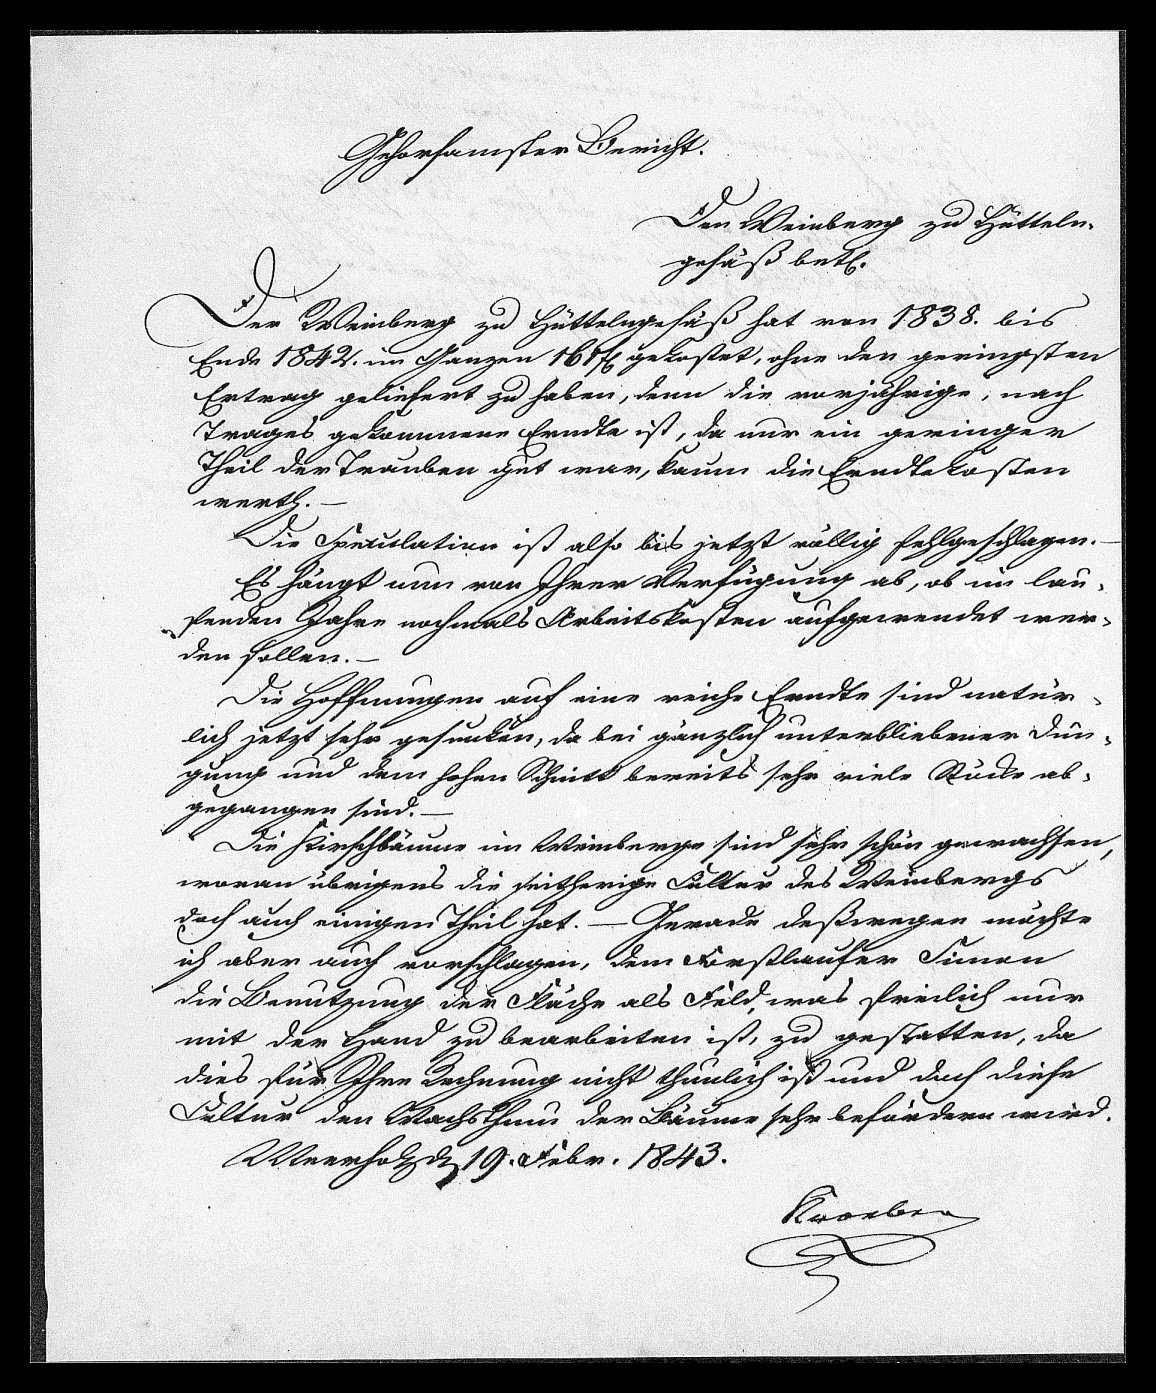 Gehorsamster Bericht.
Den Weinberg zu Hütteln-
gesäß betr.
Der Weinberg zu Hüttelngesäß hat von 1838. bis
Ende 1842. im Ganzen 161 f gekostet, ohne den geringsten
Ertrag geliefert zu haben, denn die vorjährige, nach
Trages gekommene Erndte ist, da nur ein geringer
Theil der Trauben gut war, kaum die Erndtekosten
werth. —
Die Speculation ist also bis jetzt völlig fehlgeschlagen. —
Es hängt nun von Ihrer Verfügung ab, ob im lau-
fenden Jahre nochmals Arbeitskosten aufgewendet wer-
den sollen. —
Die Hoffnungen auf eine reiche Erndte sind natür-
lich jetzt sehr gesunken, da bei gänzlich unterbliebener Dün-
gung und dem hohen Schnitt bereits sehr viele Stöcke ab-
gegangen sind. —
Die Kirschbäume im Weinberge sind sehr schön gewachsen,
woran übrigens die seitherige Cultur des Weinbergs
doch auch einigen Theil hat. — Gerade deßwegen möchte
ich aber auch vorschlagen, dem Forstlaufer Simon
die Benutzung der Fläche als Feld, was freilich nur
mit der Hand zu bearbeiten ist, zu gestatten, da
dies für Ihre Rechnung nicht thunlich ist und doch diese
Cultur den Wachsthum der Bäume sehr befördern wird.
Meerholz d. 19. Febr. 1843.
Kroeber